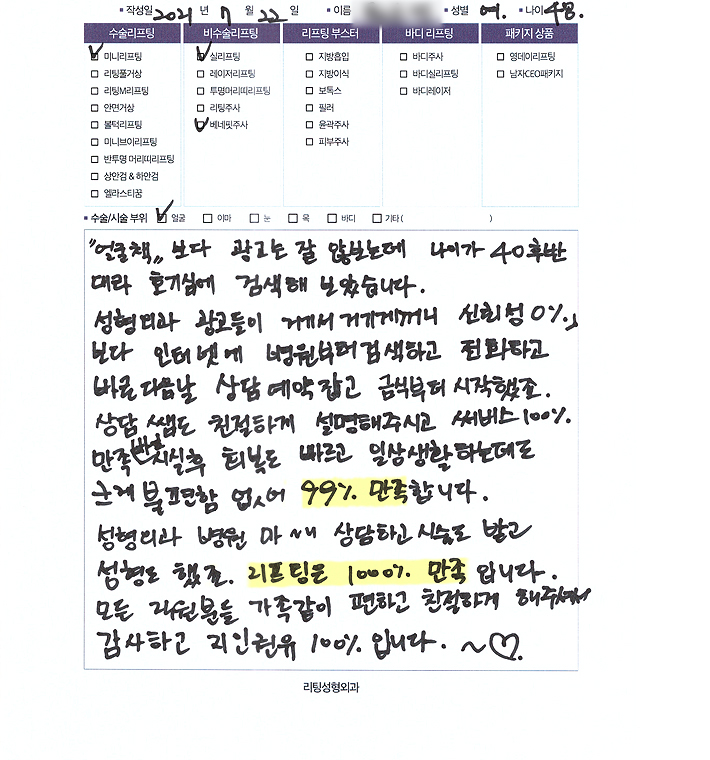 ▪ 작성일 2021 년 7 월 22 일 ▪ 이름 ▪ 성별 여. ▪ 나이 48.
수술리프팅 비수술리프팅 리프팅 부스터 바디 리프팅 패키지 상품
미니리프팅 실리프팅 지방흡입 바디주사 영데이리프팅
리팅풀거상 레이저리프팅 지방이식 바디실리프팅 남자CEO패키지
리팅M리프팅 투명머리띠리프팅 보톡스 바디레이저
안면거상 리팅주사 필러
볼턱리프팅 베네핏주사 윤곽주사
미니브이리프팅 피부주사
반투명 머리띠리프팅
상안검 & 하안검
엘라스티꿈
▪ 수술/시술 부위 얼굴 이마 눈 목 바디 기타 ( )
"얼굴책" 보다 광고는 잘 않보는데 나이가 40후반
대라 호기심에 검색해 보았습니다.
성형외과 광고들이 거게서 거기게꺼니 신회성 0%.
보다 인터넷에 병원부터 검색하고 전화하고
바로 다음날 상담 예약 잡고 금식부터 시작했죠.
상담 쌤도 친절하게 설명해주시고 써버스 100%.
만족 시실후 회복도 빠르고 일상생활 하는데도
크게 불편함 없어 99% 만족합니다.
성형외과 병원 마~니 상담하고 시술도 받고
성형도 했죠. 리프팅은 1000% 만족 입니다.
모든 직원분들 가족같이 편하고 친절하게 해주셔서
감사하고 지인권유 100% 입니다. ~♡.
리팅성형외과